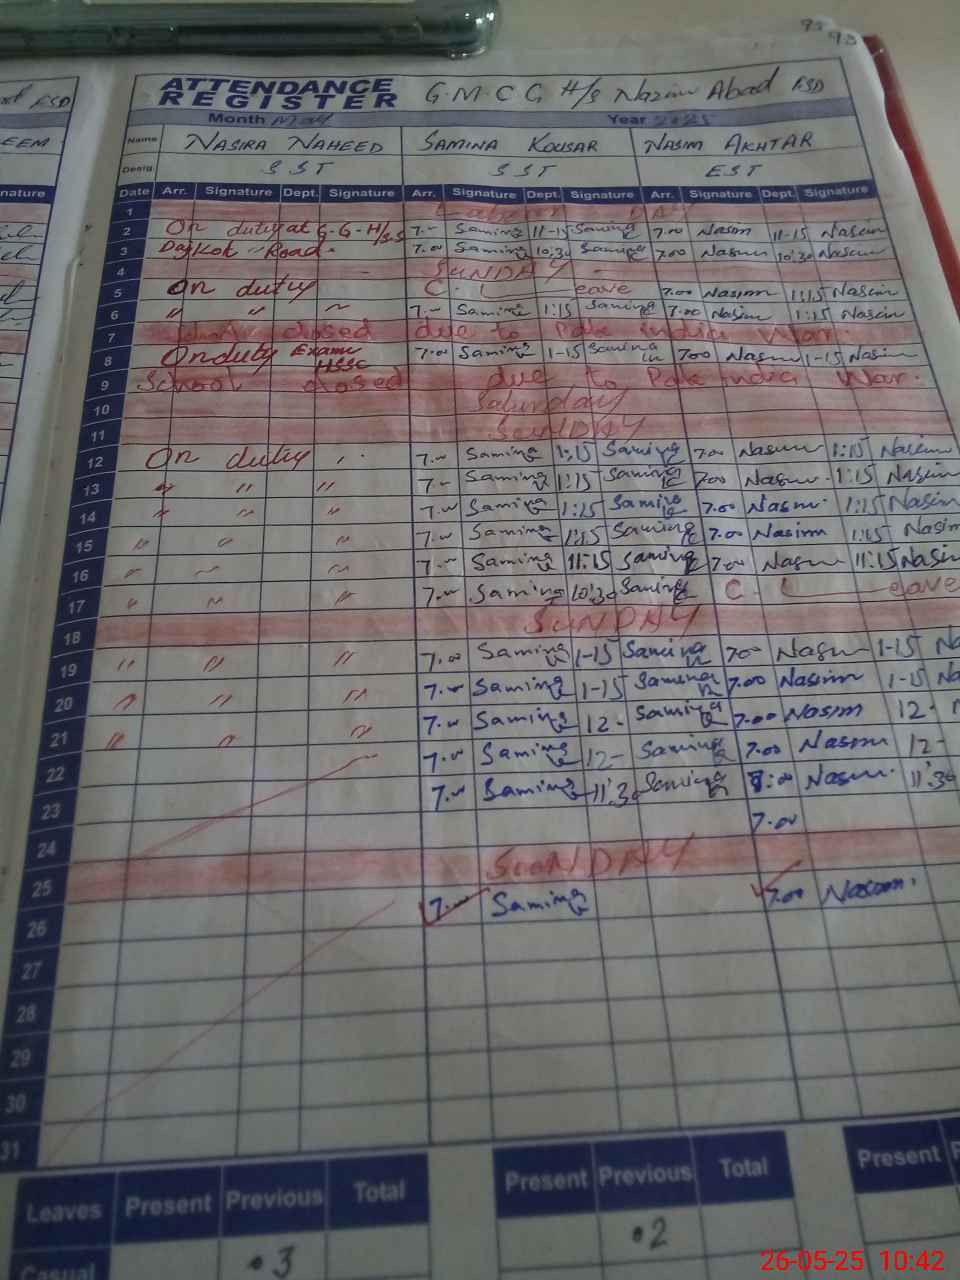 93
93
ATTENDANCE REGISTER G.M.C G H/S Nazim Abad FSD
Month May Year 2025
Name NASIRA NAHEED SAMINA KOUSAR NASIM AKHTAR
Desig. SST SST EST
Date Arr. Signature Dept. Signature Arr. Signature Dept. Signature Arr. Signature Dept. Signature
1 DAY
2 On duty at G.G.H/S.S 7.- Samina 11-15 Samina 7.00 Nasim 11-15 Nasim
3 Road 7.00 Samina 10:30 Samina 7.00 Nasim 10:30 Nasim
4 SUNDAY
5 On duty C. Leave 7.00 Nasim 1:15 Nasim
6 〃 〃 〃 7.- Samina 1:15 Samina 7.00 Nasim 1:15 Nasim
7 closed due to Pak india War.
8 On duty Exam HSSC 7.00 Samina 1-15 Samina 7.00 Nasim 1-15 Nasim
9 School closed due to Pak india War.
10 Saturday
11 SUNDAY
12 On duty 7.00 Samina 1:15 Samina 7.00 Nasim 1:15 Nasim
13 〃 〃 〃 7.- Samina 1:15 Samina 7.00 Nasim 1:15 Nasim
14 〃 〃 〃 7.00 Samina 1:15 Samina 7.00 Nasim 1:15 Nasim
15 〃 〃 〃 7.00 Samina 1:15 Samina 7.00 Nasim 1:15 Nasim
16 〃 〃 〃 7.- Samina 11:15 Samina 7.00 Nasim 11:15 Nasim
17 〃 〃 〃 7.00 Samina 10:30 Samina C. Leave
18 SUNDAY
19 〃 〃 〃 7.00 Samina 1-15 Samina 7.00 Nasim 1-15
20 〃 〃 〃 7.00 Samina 1-15 Samina 7.00 Nasim 1-15
21 〃 〃 〃 7.00 Samina 12- Samina 7.00 Nasim 12-
22 7.00 Samina 12- Samina 7.00 Nasim 12-
23 7.00 Samina 11:30 Samina 7:00 Nasim 11:30
24 7.00
25 SUNDAY
26 7.00 Samina 7.00 Nasim
27
28
29
30
31
Leaves Present Previous Total Present Previous Total Present
Casual 03 02
26-05-25 10:42